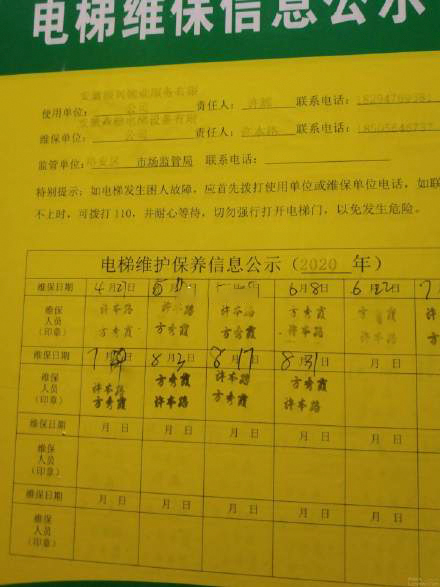 电梯维保信息公示
使用单位: 公司 责任人: 联系电话:
维保单位: 公司 责任人: 许本路 联系电话:
监管单位: 裕安区 市场监管局 联系电话:
特别提示:如电梯发生困人故障,应首先拨打使用单位或维保单位电话,如联
不上时,可拨打110,并耐心等待,切勿强行打开电梯门,以免发生危险。
电梯维护保养信息公示(2020 年)
维保日期 4月27日 月 日 6月8日 6月22日 7
维保 许本路 许本路 许本路 方秀霞 方秀霞 许本路
人员
(印章) 方秀霞 方秀霞 方秀霞 许本路 许本路 方秀霞
维保日期 7月 日 8月3日 8月17日 8月31日 月 日 月
维保 许本路 方秀霞 许本路 方秀霞
人员
(印章) 方秀霞 许本路 方秀霞 许本路
维保日期 月 日 月 日 月 日 月 日 月 日 月
维保
人员
(印章)
维保日期 月 日 月 日 月 日 月 日 月 日 月
维保
人员
(印章)